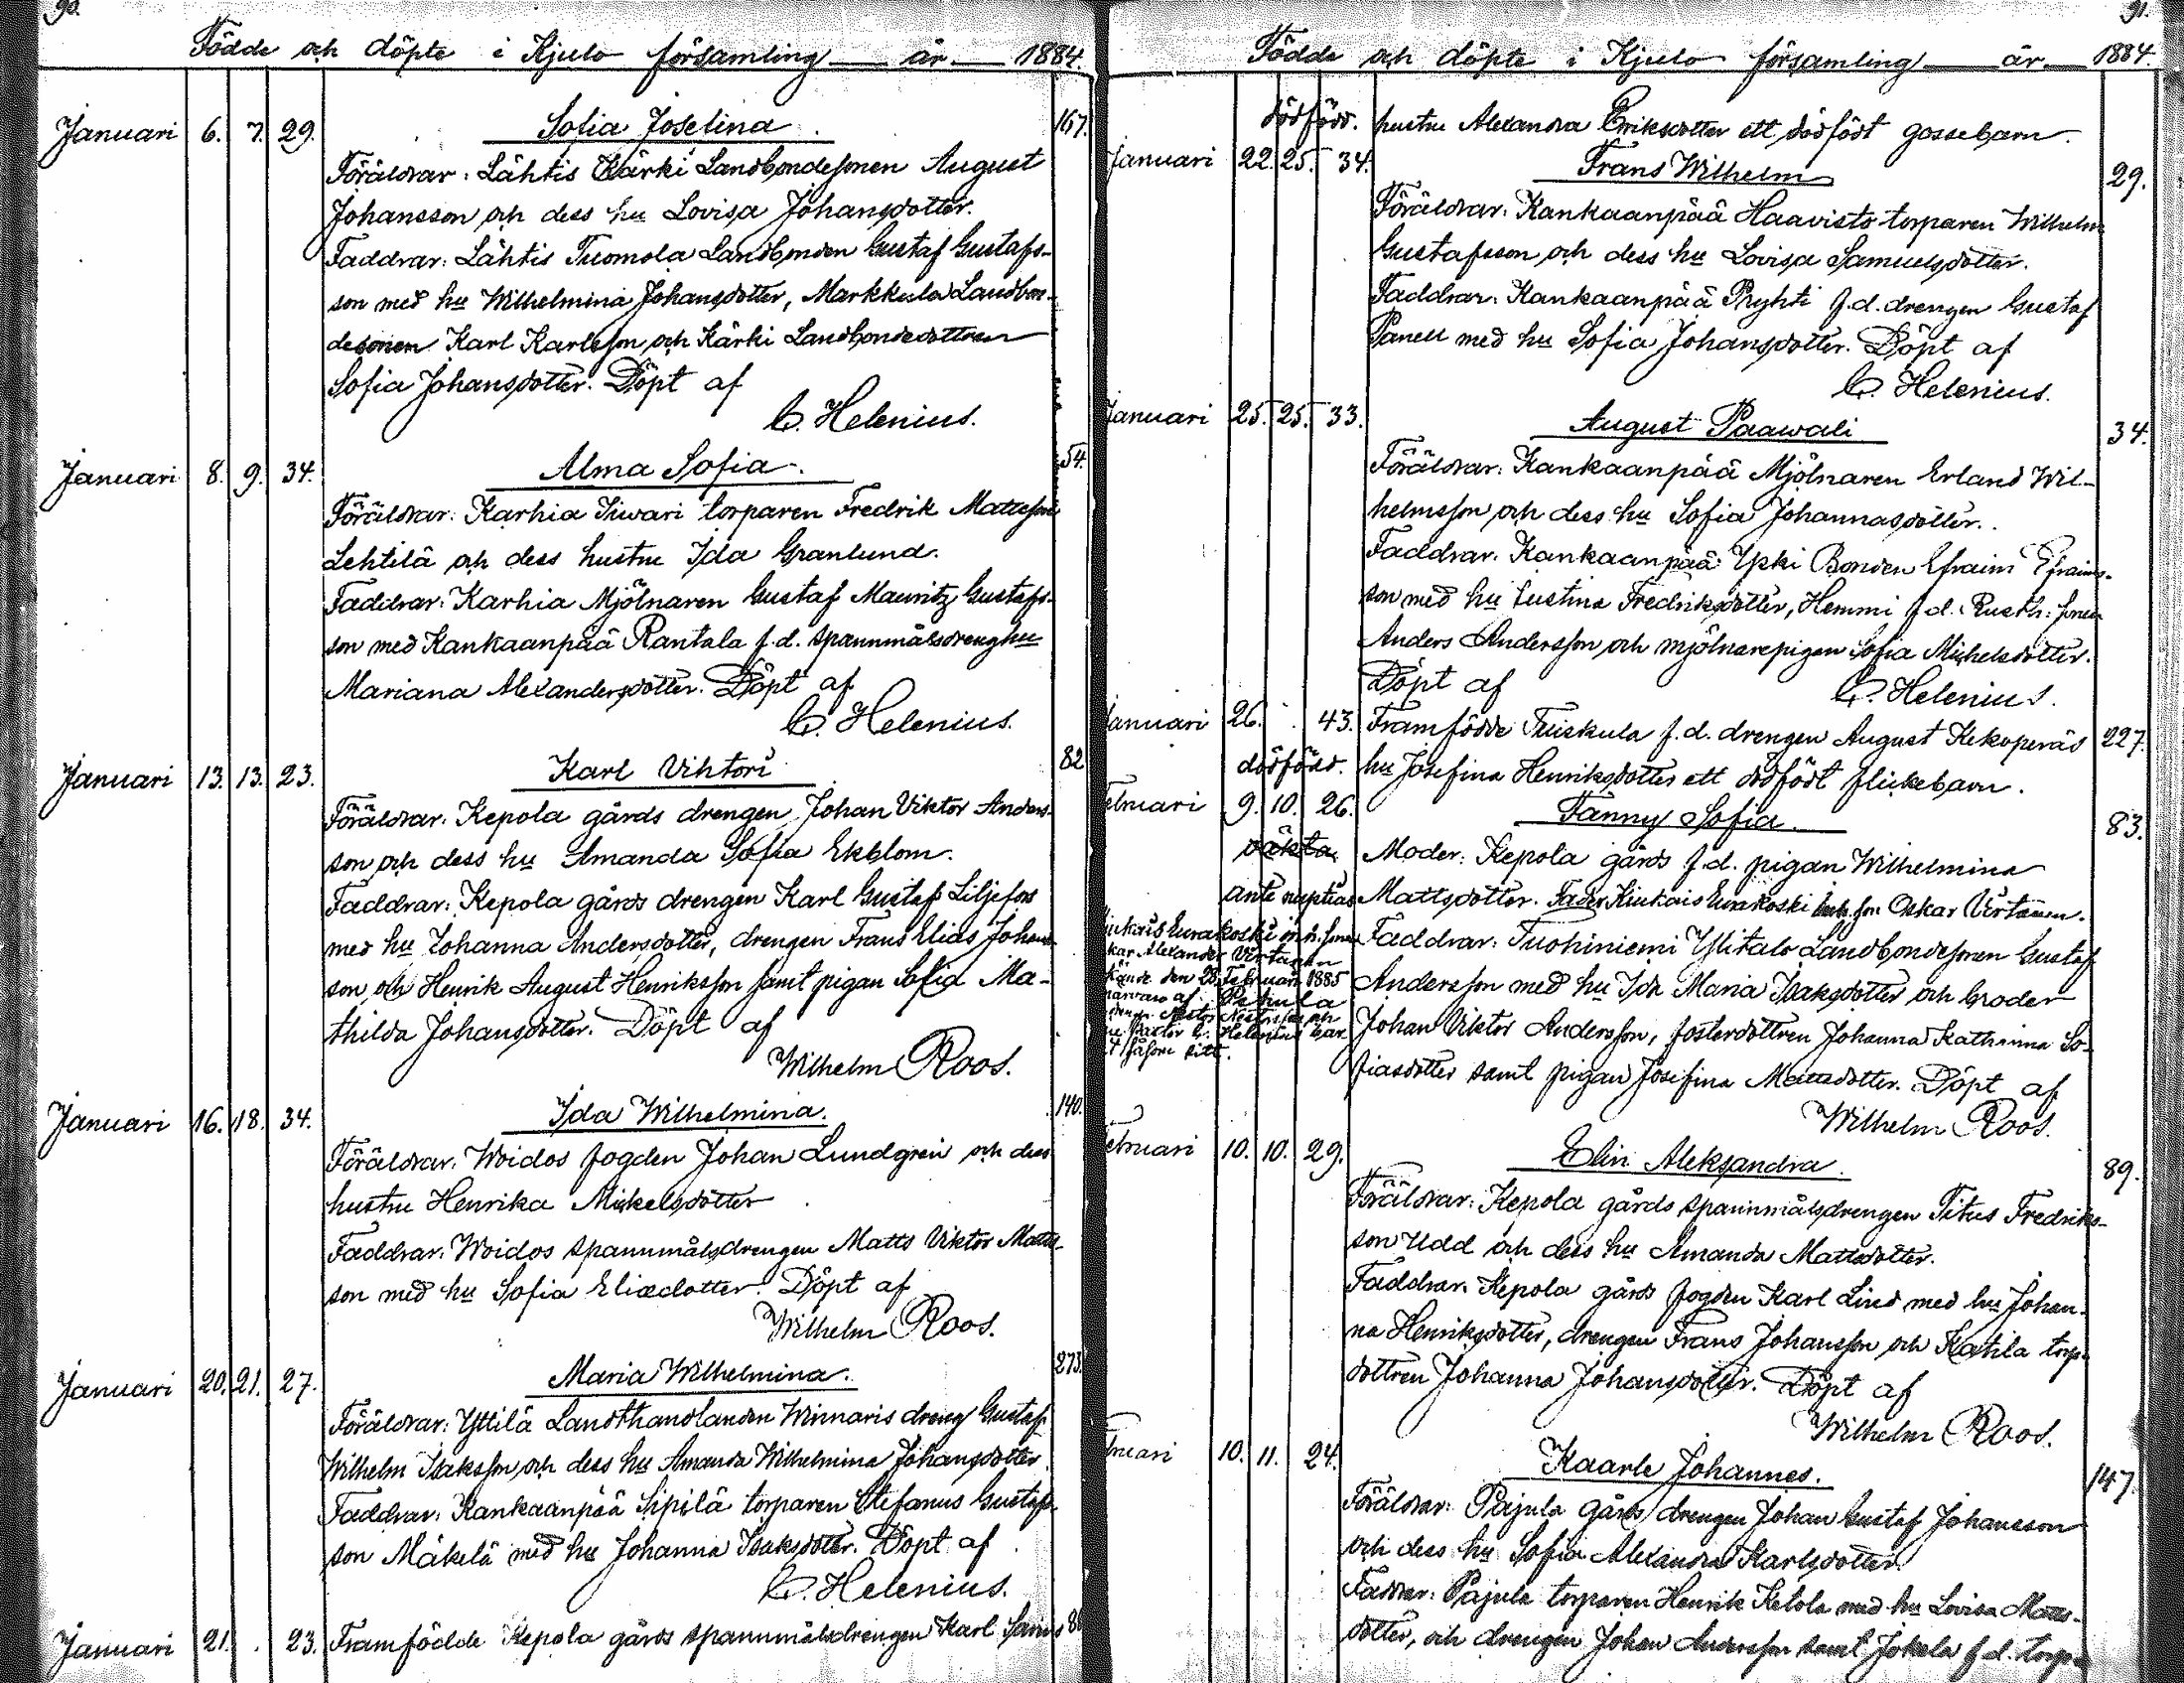 90.
Födde och döpte i Kjulo församling år 1884.
Januari 6. 7. 29. Sofia Josefina 167.
Föräldrar: Lähtis Kärki Landbondesonen August
Johansson och dess hu Lovisa Johansdotter.
Faddrar: Lähtis Tuomola Landbonden Gustaf Gustafs-
son med hu Wilhelmina Johansdotter, Markkula Landbon-
desonen Karl Karlsson och Kärki Landbondedottren
Sofia Johansdotter. Döpt af
C. Helenius.
Januari 8. 9. 34. Alma Sofia. 54.
Föräldrar: Karhia Siwari torparen Fredrik Mattsson
Lehtilä och dess hustru Ida Granlund.
Faddrar: Karhia Mjölnaren Gustaf Mauritz Gustafs-
son med Kankaanpää Rantala f.d. spannmålsdrenghu
Mariana Alexandersdotter. Döpt af
C. Helenius.
Januari 13. 13. 23. Karl Vihtori 82
Föräldrar: Kepola gårds drengen Johan Viktor Anders-
son och dess hu Amanda Sofia Ekblom.
Faddrar: Kepola gårds drengen Karl Gustaf Liljefors
med hu Johanna Andersdotter, drengen Frans Elias Johans-
son och Henrik August Henriksson samt pigan Sofia Ma-
thilda Johansdotter. Döpt af
Wilhelm Roos.
Januari 16. 18. 34. Ida Wilhelmina. 140.
Föräldrar: Woidos fogden Johan Lundgren och dess
hustru Henrika Mickelsdotter
Faddrar: Woidos spannmålsdrengen Matts Viktor Matts-
son med hu Sofia Eliædotter. Döpt af
Wilhelm Roos.
Januari 20. 21. 27. Maria Wilhelmina. 273.
Föräldrar: Yttilä Landthandlanden Winnaris dreng Gustaf
Wilhelm Isaksson och dess hu Amanda Wilhelmina Johansdotter.
Faddrar: Kankaanpää Sipilä torparen Stefanus Gustafs-
son Mäkelä med hu Johanna Isaksdotter. Döpt af
C. Helenius.
Januari 21. 23. Framfödde Kepola gårds spannmålsdrengen Karl 86
91.
Födde och döpte i Kjulo församling år 1884.
dödfödd. hustru Alexandra Eriksdotter ett dödfödt gossebarn.
Januari 22. 25. 34. Frans Wilhelm 29.
Föräldrar: Kankaanpää Haavisto torparen Wilhelm
Gustafsson och dess hu Lovisa Samuelsdotter.
Faddrar: Kankaanpää Pryhti f.d. drengen Gustaf
Panell med hu Sofia Johansdotter. Döpt af
C. Helenius.
Januari 25. 25. 33. August Paawali 34.
Föräldrar: Kankaanpää Mjölnaren Erland Wil-
helmsson och dess hu Sofia Johannasdotter.
Faddrar: Kankaanpää Ypki Bonden Efraim Efraims-
son med hu Justina Fredriksdotter, Hemmi f.d. Rusth: sonen
Anders Andersson och mjölnarepigan Sofia Michelsdotter.
Döpt af C. Helenius.
Januari 26. 43. Framfödde Tuiskula f.d. drengen August Kekoperäs 227.
dödfödd. hu Josefina Henriksdotter ett dödfödt flickebarn.
Februari 9. 10. 26. Fanny Sofia. 83.
oäkta Moder: Kepola gårds f.d. pigan Wilhelmina
ante nuptias Mattsdotter. Fader Kiukais Eurakoski Oskar Virtanen.
Faddrar: Tuohiniemi Ylitalo Landbondesonen Gustaf
Andersson med hu Ida Maria Isaksdotter och broder
Johan Viktor Andersson, fosterdottren Johanna Katharina So-
fiasdotter samt pigan Josefina Mattsdotter. Döpt af
Wilhelm Roos.
Kiukais Eurakoski inh. sonen
Oskar Alexander Virtanen
den 28 Februari 1885
Februari 10. 10. 29. Elin Aleksandra. 89.
Föräldrar: Kepola gårds spannmålsdrengen Titus Fredriks-
son Udd och dess hu Amanda Mattsdotter.
Faddrar: Kepola gårds fogden Karl Lind med hu Johan-
na Henriksdotter, drengen Frans Johansson och Katila torp-
dottren Johanna Johansdotter. Döpt af
Wilhelm Roos.
Februari 10. 11. 24. Kaarle Johannes. 147.
Föräldrar: Pajula gårds drengen Johan Gustaf Johansson
och dess hu Sofia Alexandra Karlsdotter.
Faddrar: Pajula torparen Henrik Ketola med hu Lovisa Matts-
dotter, och drengen Johan Andersson samt Jokela f.d. torp-